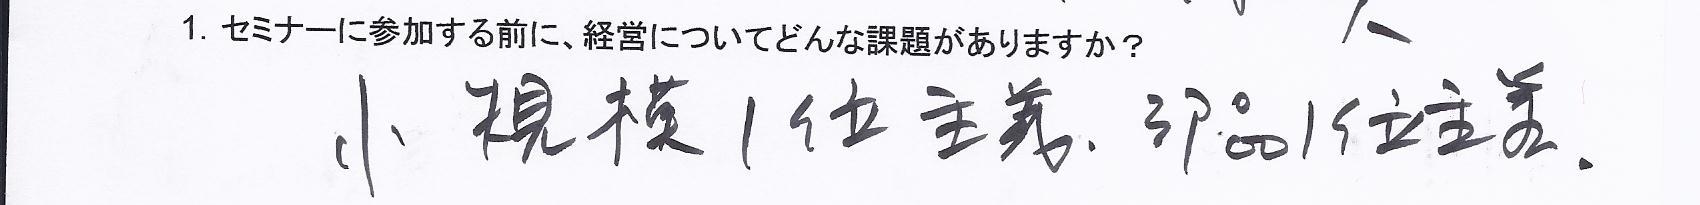 1. セミナーに参加する前に、経営についてどんな課題がありますか？
小規模1位主義、部品1位主義.